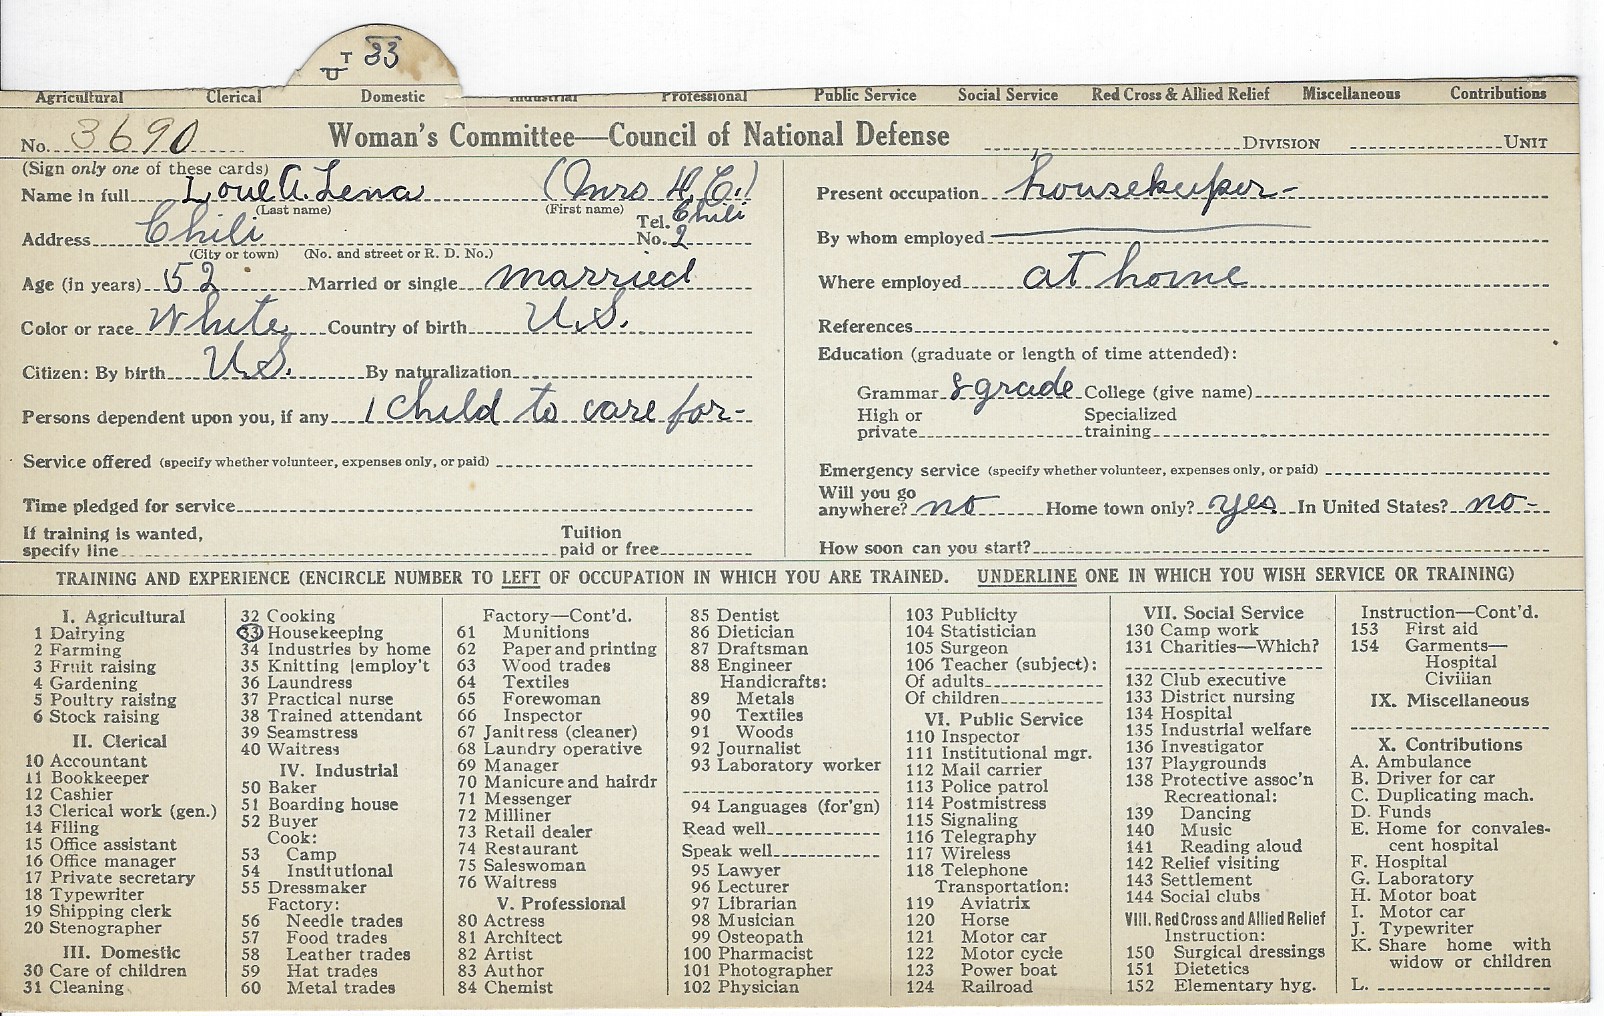 T 33
U
Agricultural Clerical Domestic Industrial Professional Public Service Social Service Red Cross & Allied Relief Miscellaneous Contributions
No. 3690 Woman's Committee—Council of National Defense DIVISION UNIT
(Sign only one of these cards)
Name in full Love A. Lena (Mrs H. C.)
(Last name) (First name)
Address Chili Tel. No. Chili 2
(City or town) (No. and street or R. D. No.)
Age (in years) 52 Married or single married
Color or race White Country of birth U.S.
Citizen: By birth U.S. By naturalization
Persons dependent upon you, if any 1 child to care for-
Service offered (specify whether volunteer, expenses only, or paid)
Time pledged for service
If training is wanted, specify line Tuition paid or free
Present occupation housekeeper-
By whom employed
Where employed at home
References
Education (graduate or length of time attended):
Grammar 8 grade College (give name)
High or private Specialized training
Emergency service (specify whether volunteer, expenses only, or paid)
Will you go anywhere? no Home town only? yes In United States? no-
How soon can you start?
TRAINING AND EXPERIENCE (ENCIRCLE NUMBER TO LEFT OF OCCUPATION IN WHICH YOU ARE TRAINED. UNDERLINE ONE IN WHICH YOU WISH SERVICE OR TRAINING)
I. Agricultural
1 Dairying
2 Farming
3 Fruit raising
4 Gardening
5 Poultry raising
6 Stock raising
II. Clerical
10 Accountant
11 Bookkeeper
12 Cashier
13 Clerical work (gen.)
14 Filing
15 Office assistant
16 Office manager
17 Private secretary
18 Typewriter
19 Shipping clerk
20 Stenographer
III. Domestic
30 Care of children
31 Cleaning
32 Cooking
33 Housekeeping
34 Industries by home
35 Knitting [employ't
36 Laundress
37 Practical nurse
38 Trained attendant
39 Seamstress
40 Waitress
IV. Industrial
50 Baker
51 Boarding house
52 Buyer
Cook:
53 Camp
54 Institutional
55 Dressmaker
Factory:
56 Needle trades
57 Food trades
58 Leather trades
59 Hat trades
60 Metal trades
Factory—Cont'd.
61 Munitions
62 Paper and printing
63 Wood trades
64 Textiles
65 Forewoman
66 Inspector
67 Janitress (cleaner)
68 Laundry operative
69 Manager
70 Manicure and hairdr
71 Messenger
72 Milliner
73 Retail dealer
74 Restaurant
75 Saleswoman
76 Waitress
V. Professional
80 Actress
81 Architect
82 Artist
83 Author
84 Chemist
85 Dentist
86 Dietician
87 Draftsman
88 Engineer
Handicrafts:
89 Metals
90 Textiles
91 Woods
92 Journalist
93 Laboratory worker
94 Languages (for'gn)
Read well
Speak well
95 Lawyer
96 Lecturer
97 Librarian
98 Musician
99 Osteopath
100 Pharmacist
101 Photographer
102 Physician
103 Publicity
104 Statistician
105 Surgeon
106 Teacher (subject):
Of adults
Of children
VI. Public Service
110 Inspector
111 Institutional mgr.
112 Mail carrier
113 Police patrol
114 Postmistress
115 Signaling
116 Telegraphy
117 Wireless
118 Telephone
Transportation:
119 Aviatrix
120 Horse
121 Motor car
122 Motor cycle
123 Power boat
124 Railroad
VII. Social Service
130 Camp work
131 Charities—Which?
132 Club executive
133 District nursing
134 Hospital
135 Industrial welfare
136 Investigator
137 Playgrounds
138 Protective assoc'n
Recreational:
139 Dancing
140 Music
141 Reading aloud
142 Relief visiting
143 Settlement
144 Social clubs
VIII. Red Cross and Allied Relief
Instruction:
150 Surgical dressings
151 Dietetics
152 Elementary hyg.
Instruction—Cont'd.
153 First aid
154 Garments—
Hospital
Civilian
IX. Miscellaneous
X. Contributions
A. Ambulance
B. Driver for car
C. Duplicating mach.
D. Funds
E. Home for convales-
cent hospital
F. Hospital
G. Laboratory
H. Motor boat
I. Motor car
J. Typewriter
K. Share home with
widow or children
L.